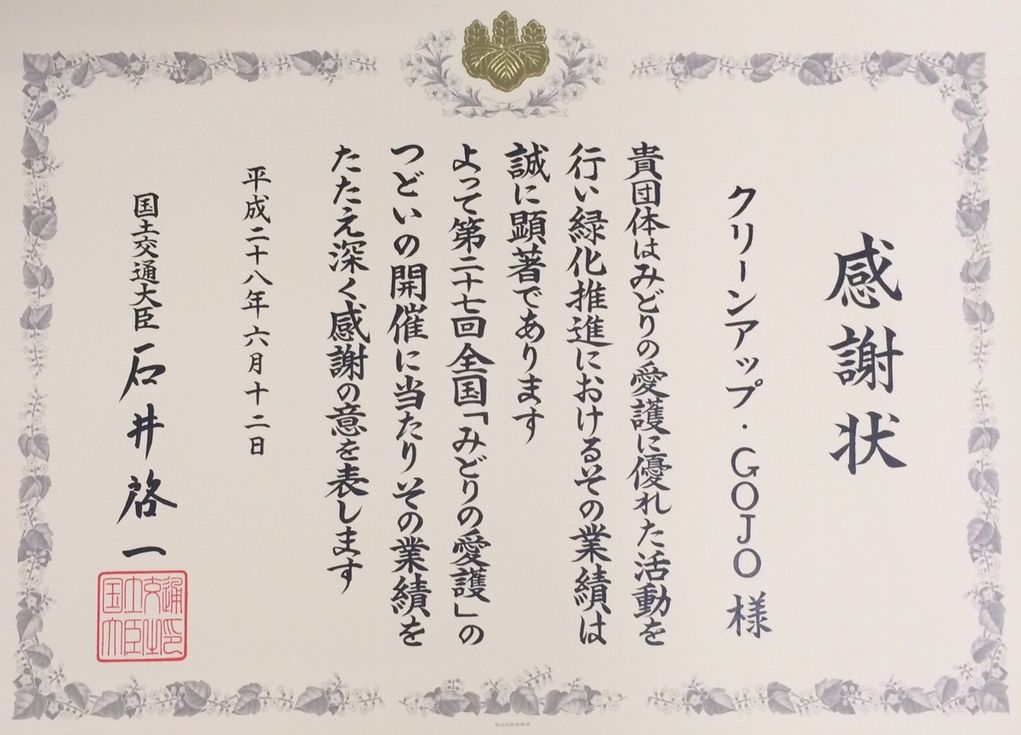 感謝状
クリーンアップ・GOJO 様
貴団体はみどりの愛護に優れた活動を
行い緑化推進におけるその業績は
誠に顕著であります
よって第二十七回全国「みどりの愛護」の
つどいの開催に当たりその業績を
たたえ深く感謝の意を表します
平成二十八年六月十二日
国土交通大臣 石井啓一
国土交通大臣之印